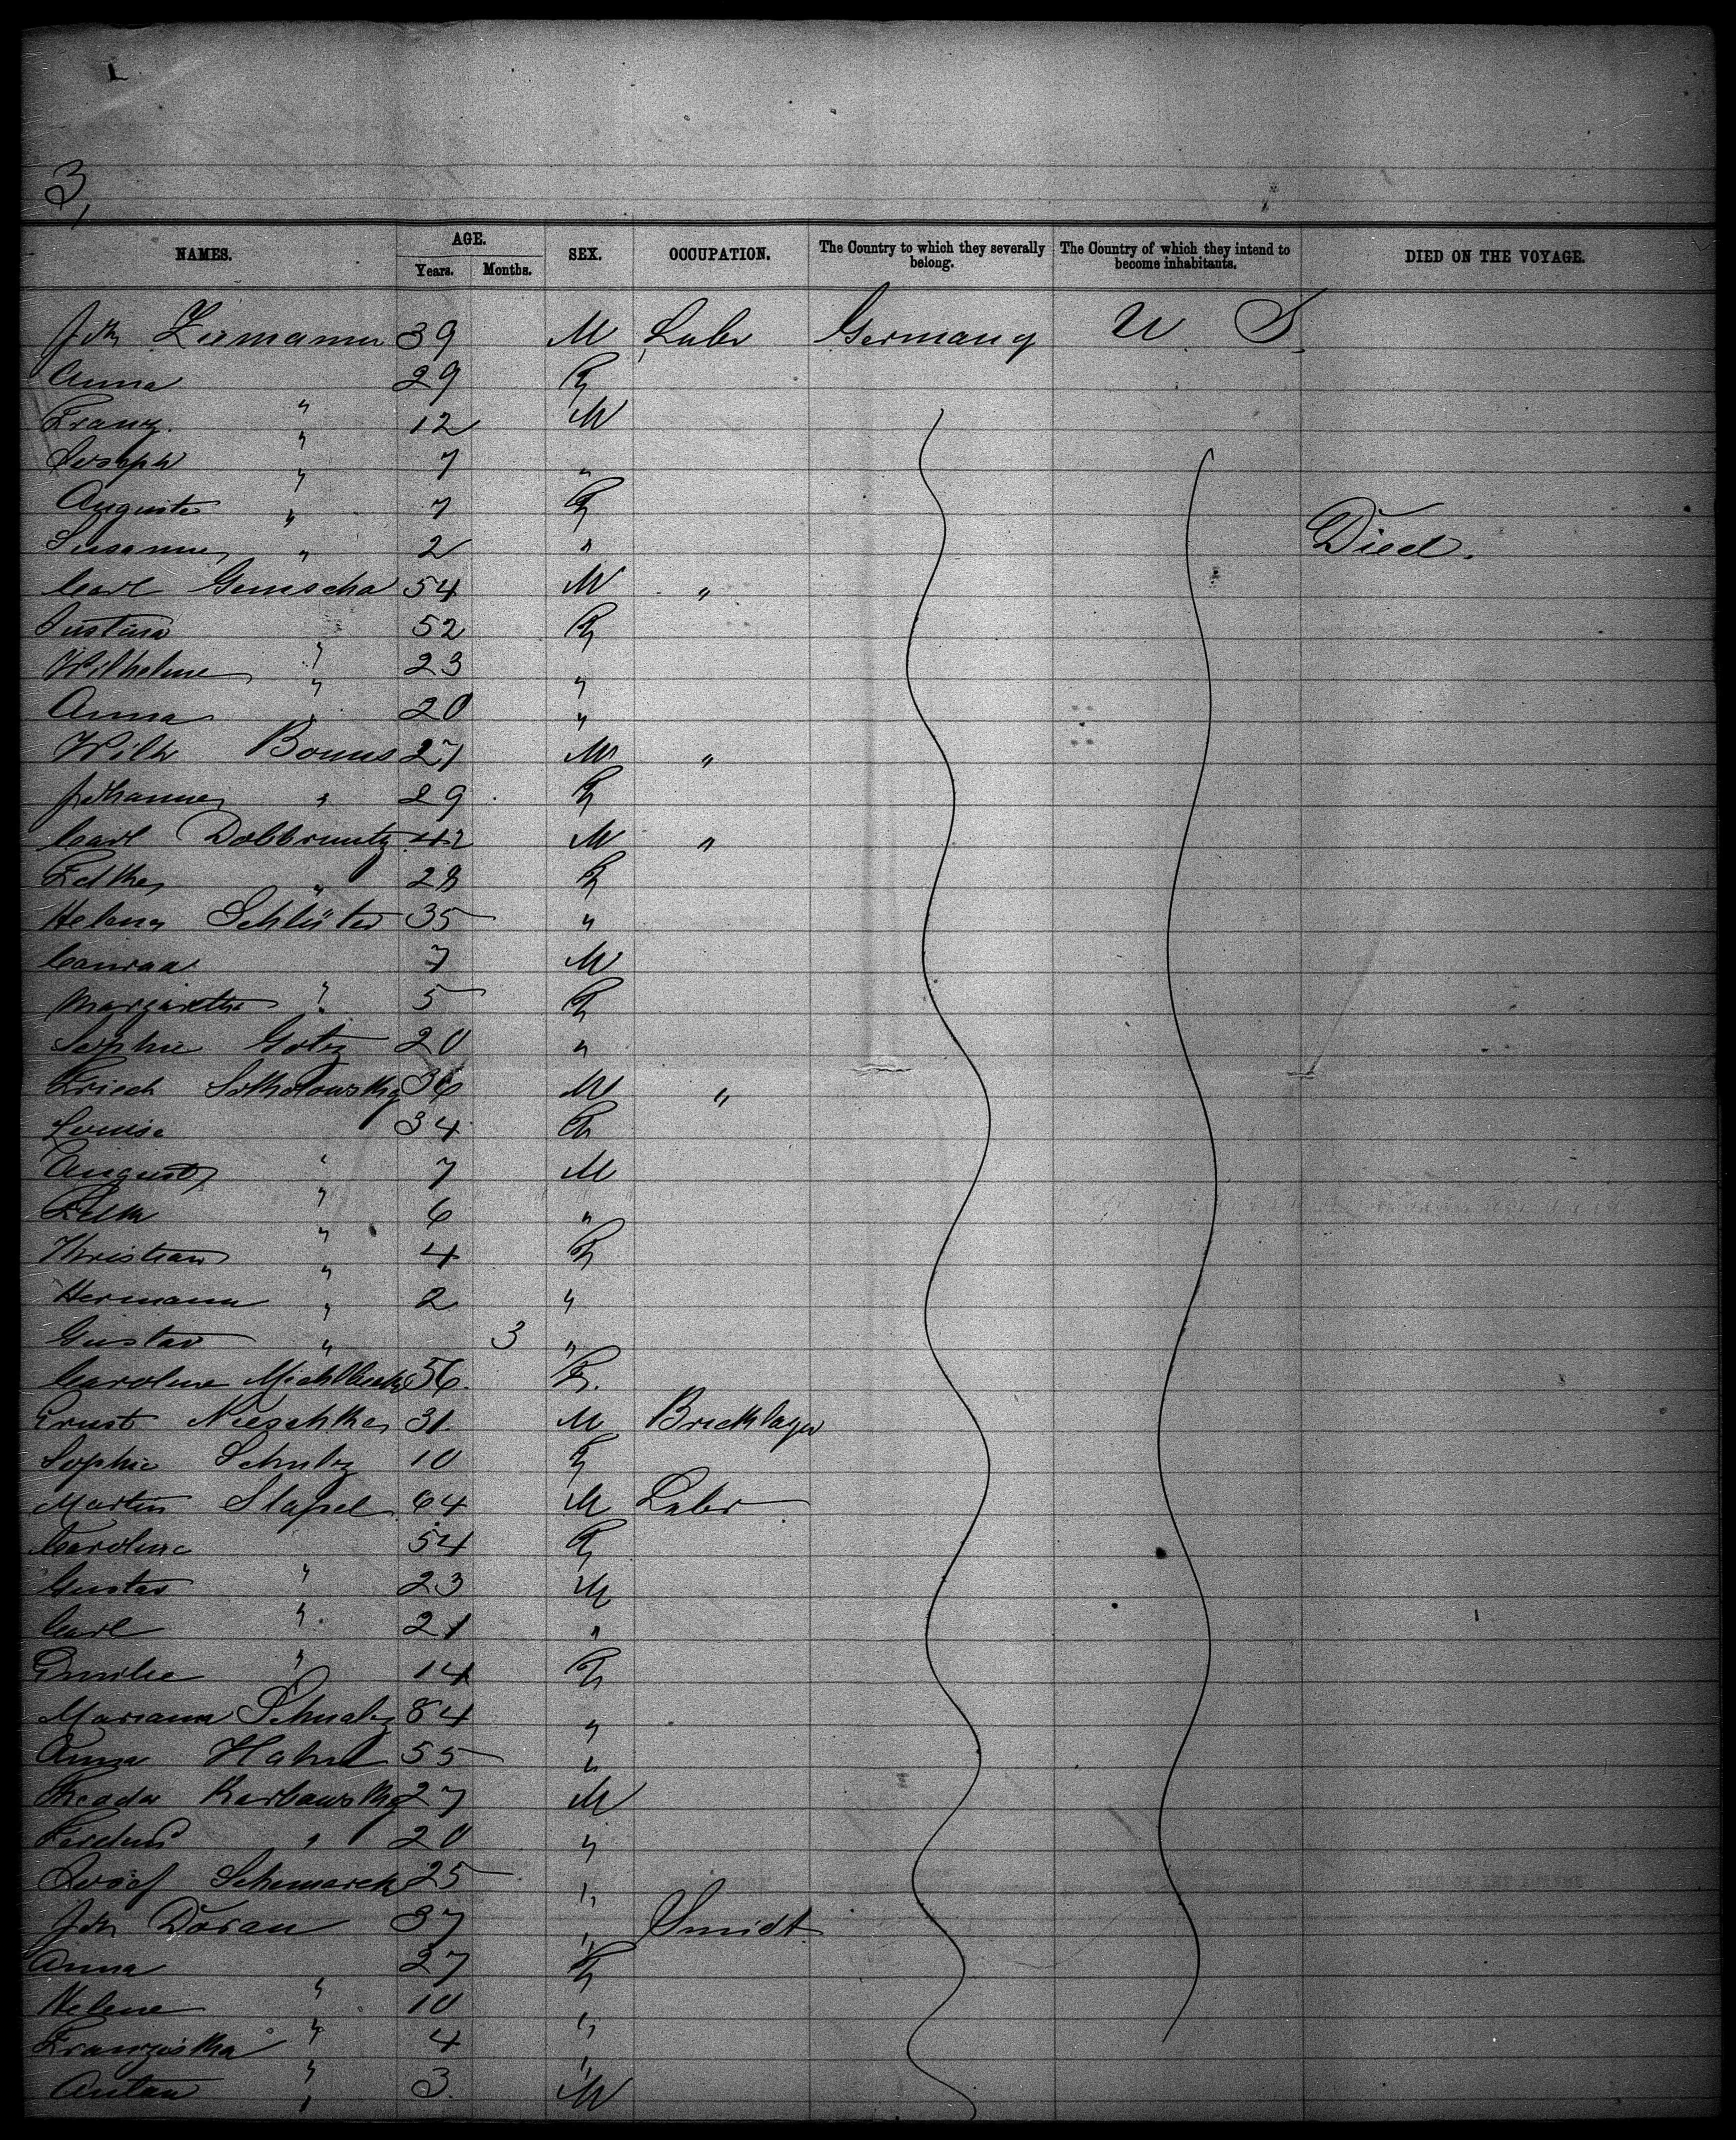 3,
NAMES. AGE. SEX. OCCUPATION. The Country to which they severally belong. The Country of which they intend to become inhabitants. DIED ON THE VOYAGE.
Years. Months.
Joh Ziemann 39 M Labr Germany U. S.
Anna " 29 F
Franz " 12 M
Joseph " 7 "
Auguste " 7 F
Susanne " 2 " Died.
Carl Gemscha 54 M "
Justina " 52 F
Wilhelme " 23 "
Anna " 20 "
Wilh Bonus 27 M "
Johanne " 29 F
Carl Dobbruntz 42 M "
" 28 F
Helena Schlüter 35 "
Conrad " 7 M
Margarethe " 5 F
Sophie Gotz 20 "
Friech Sokolowsky 36 M "
Louise " 34 F
August " 7 M
" 6 "
Christian " 4 F
Hermann " 2 "
Gustav " 3 "
Caroline 56 F.
Ernst Nieschke 31 M Bricklayer
Sophie Schulz 10 F
Martin Stapel 64 M Labr
Caroline " 54 F
Gustav " 23 M
Carl " 21 "
Emilie " 14 F
Mariana 84 "
Anna Hahn 55 "
Karbowsky 27 M
" 20 "
Josef Schemarek 25 "
Joh Doran 37 " Smidt
Anna " 27 F
Helene " 10 "
Franziska " 4 "
Anton " 3 M